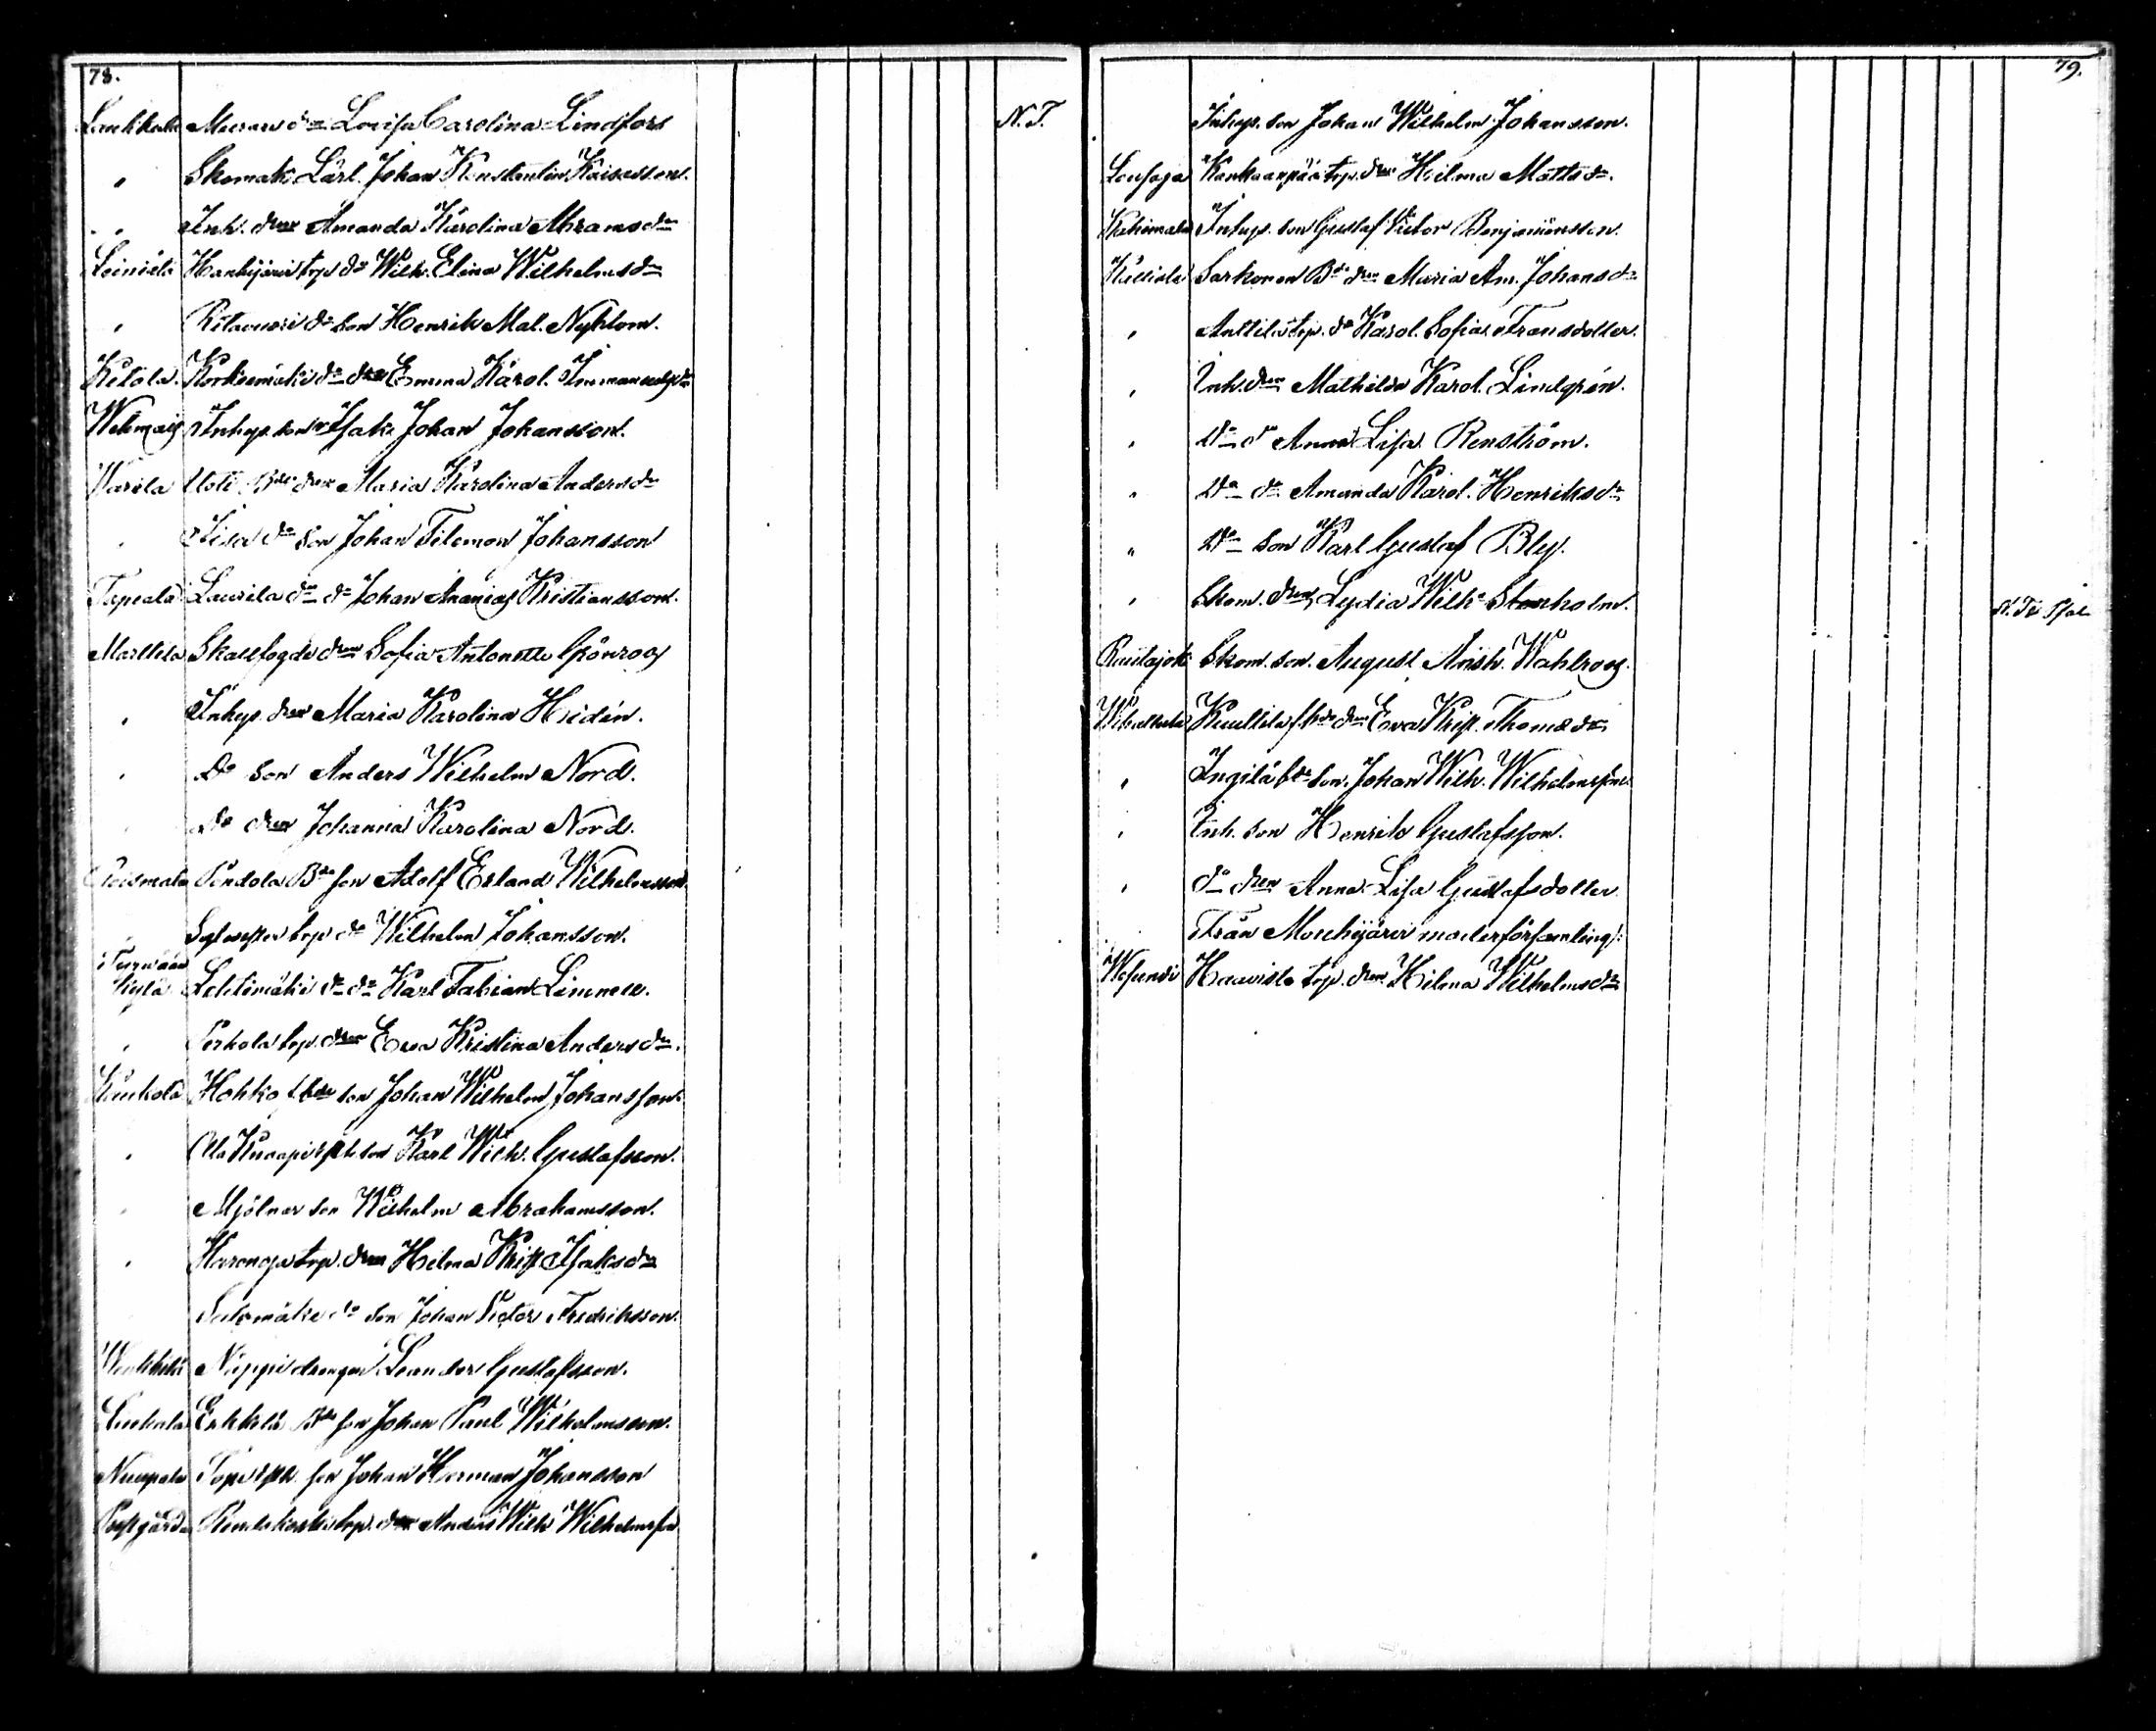 78.
Laukkala Murars dr Lovisa Carolina Lindfors N.T.
" Skomak. Lärl. Johan Konstantin Kaisasson.
" Inh. dren Amanda Karolina Abramsdr
Leiniälä Hankijärvi trp dr Wilh. Elina Wilhelmsdr
" Ritavuori do son Henrik Mal. Nyblom.
Ketola. Korkeemäki do dren Emma Karol. Immanuelsdr
Wehmais Inhys. son Isak Johan Johansson.
Warila Uoti Bde dren Maria Karolina Andersdr
" Liisa do son Johan Filemon Johansson
Tapiala Laurila do do Johan Ananias Kristiansson.
Marttila Skallfogde dren Sofia Antonette Grönroos
" Inhys. dren Maria Karolina Hidén.
" Do son Anders Wilhelm Nord.
" Do dren Johanna Karolina Nord.
Pendola Bde son Adolf Erland Wilhelmsson.
" trp do Wilhelm Johansson.
Lehtimäki do do Karl Fabian Limnell.
" Perkola trp. dren Eva Kristina Andersdr.
Hohko bde son Johan Wilhelm Johansson.
" son Karl Wilh. Gustafsson.
" Mjölnar son Wilhelm Abrahamsson.
" trp. dren Hilma Krist. Isaksdr
Salomäki do son Johan Victor Fredriksson.
Nuppi drengen Leander Gustafsson.
Erkkilä Bde son Johan Paul Wilhelmsson.
Nuupala son Johan Herman Johansson
Prestgården trp. Anders Wilh. Wilhelmsson
79.
Inhys. son Johan Wilhelm Johansson.
Leusoja Kankaanpää trp. dren Hilma Mattsdr.
Inhys. son Gustaf Victor Benjaminsson.
Sarkonen Bde dren Maria Am. Johansdr
" Anttila trp. dr Karol. Sofia Fransdotter.
" Inh. dren Mathilda Karol. Lindgrén.
" Do dr Anna Lisa Renström.
" Do dr Amanda Karol. Henriksdr
" Do son Karl Gustaf Bly.
" Skom. dren Lydia Wilh. Stenholm. N.T. Psal.
Rautajoki Skom. son August Ansh. Wahlroos.
Kuultila bde dren Eva Krist. Thomasdr
" Ingilä bde son Johan Wilh. Wilhelmsson.
" Inh. son Henrik Gustafsson.
" do dren Anna Lisa Gustafsdotter
Från Mouhijärvi moderförsamling:
Wesunti Haavisto trp. dren Hilma Wilhelmsdr